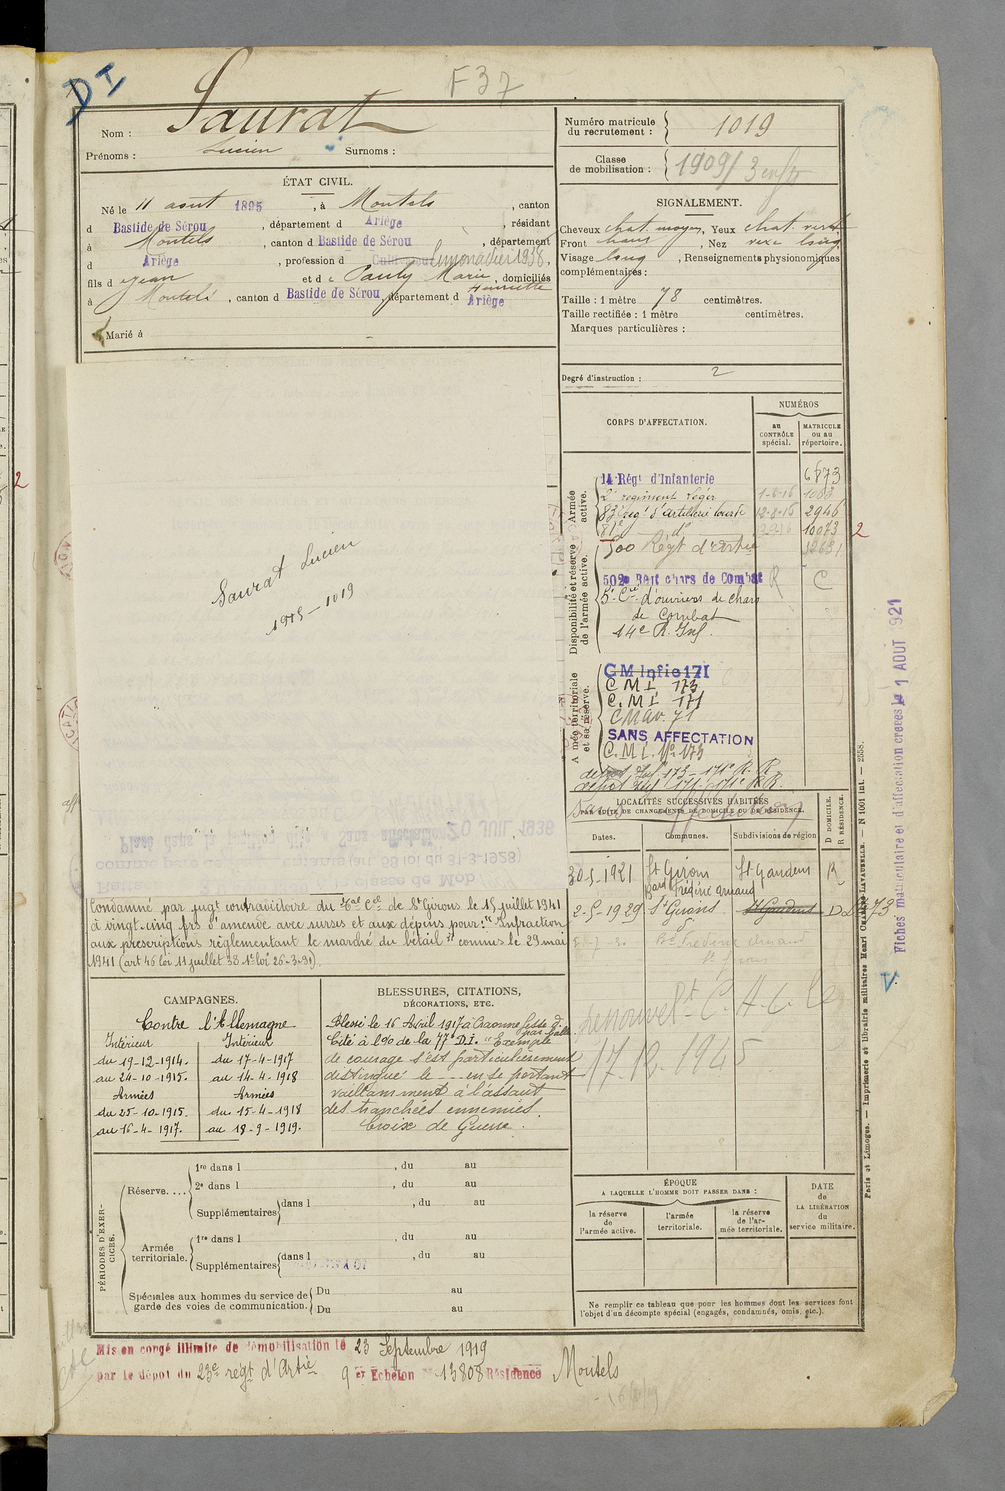 DI
F 37
Nom : Saurat
Prénoms : Lucien Surnoms :
Numéro matricule du recrutement : 1019
Classe de mobilisation : 1909/3
ÉTAT CIVIL.
Né le 11 aout 1895, à Montels, canton
d Bastide de Sérou, département d Ariège, résidant
à Montels, canton d Bastide de Sérou, département
d Ariège, profession d limonadier 1938,
fils d Jean et d e Pauly Marie Henriette, domiciliés
à Montels, canton d Bastide de Sérou, département d Ariège
Marié à
SIGNALEMENT.
Cheveux chat. moyen, Yeux chat. verd.
Front haut, Nez vexe long
Visage long, Renseignements physionomiques
complémentaires :
Taille : 1 mètre 78 centimètres.
Taille rectifiée : 1 mètre centimètres.
Marques particulières :
Degré d'instruction : 2
Saurat Lucien
1915 - 1019
CORPS D'AFFECTATION.
NUMÉROS
au CONTRÔLE spécial.
MATRICULE ou au répertoire.
Armée active.
14 Régt d'Infanterie 6573
2e régiment léger 1-6-16 1083
83e régt d'artillerie lourde 12-8-16 2946
81e do 10073
500 Régt d'Artie
Disponibilité et réserve de l'armée active.
502e Regt chars de Combat R C
5e Cie d'ouvriers de chars
de Combat
14e R. Inf.
Armée territoriale et sa réserve.
GM Infie 171
C M I 173
C. M I 171
C Mav. 71
SANS AFFECTATION
C. M I. No 173
dépot Inf 173 - 171e R. R
dépot Inf 171 - 171e R.R.
LOCALITÉS SUCCESSIVES HABITÉES
PAR SUITE DE CHANGEMENTS DE DOMICILE OU DE RÉSIDENCE.
Dates. Communes. Subdivisions de région
D DOMICILE. R RÉSIDENCE.
30-5-1921 St Girons St Gaudens R
Frédéric Arnaud
2-5-1929 St Girons St Gaudens D
St Girons
17.12.1945
20 JUIL 1938
Condamné par jugt contradictoire du Tal Cel de St Girons le 15 juillet 1941
à vingt-cinq frs d'amende avec sursis et aux dépens pour : "Infraction
aux prescriptions règlementant le marché du bétail" commis le 29 mai
1941 (art 46 loi 11 juillet 38 1° loi 26-3-91).
CAMPAGNES.
Contre l'Allemagne
Intérieur
du 19-12-1914.
au 24-10-1915.
Armées
du 25-10-1915.
au 16-4-1917.
Intérieur
du 17-4-1917
au 14-4-1918
Armées
du 15-4-1918
au 18-9-1919.
BLESSURES, CITATIONS,
DÉCORATIONS, ETC.
Blessé le 16 Avril 1917 à Craonne fesse g. par balle
Cité à l'Oo de la 77e D.I. "Exemple
de courage s'est particulièrement
distingué le - en se portant
vaillamment à l'assaut
des tranchées ennemies.
Croix de Guerre.
PÉRIODES D'EXERCICES.
Réserve....
1re dans l , du au
2e dans l , du au
Supplémentaires dans l , du au
Armée territoriale.
1re dans l , du au
Supplémentaires dans l , du au
Spéciales aux hommes du service de
garde des voies de communication.
Du au
Du au
ÉPOQUE
A LAQUELLE L'HOMME DOIT PASSER DANS :
la réserve de l'armée active.
l'armée territoriale.
la réserve de l'armée territoriale.
DATE de LA LIBÉRATION du service militaire.
Ne remplir ce tableau que pour les hommes dont les services font
l'objet d'un décompte spécial (engagés, condamnés, omis, etc.).
Mis en congé illimité de démobilisation le 23 Septembre 1919
par le dépot du 23e régt d'Artie 9 er Echelon no 13808 Résidence Montels
Fiches matriculaire et d'affectation créées le 1 AOUT 1921
Paris et Limoges. — Imprimerie et librairie militaires Henri CHARLES-LAVAUZELLE. — N° 1001 int. — 2558.
2
2